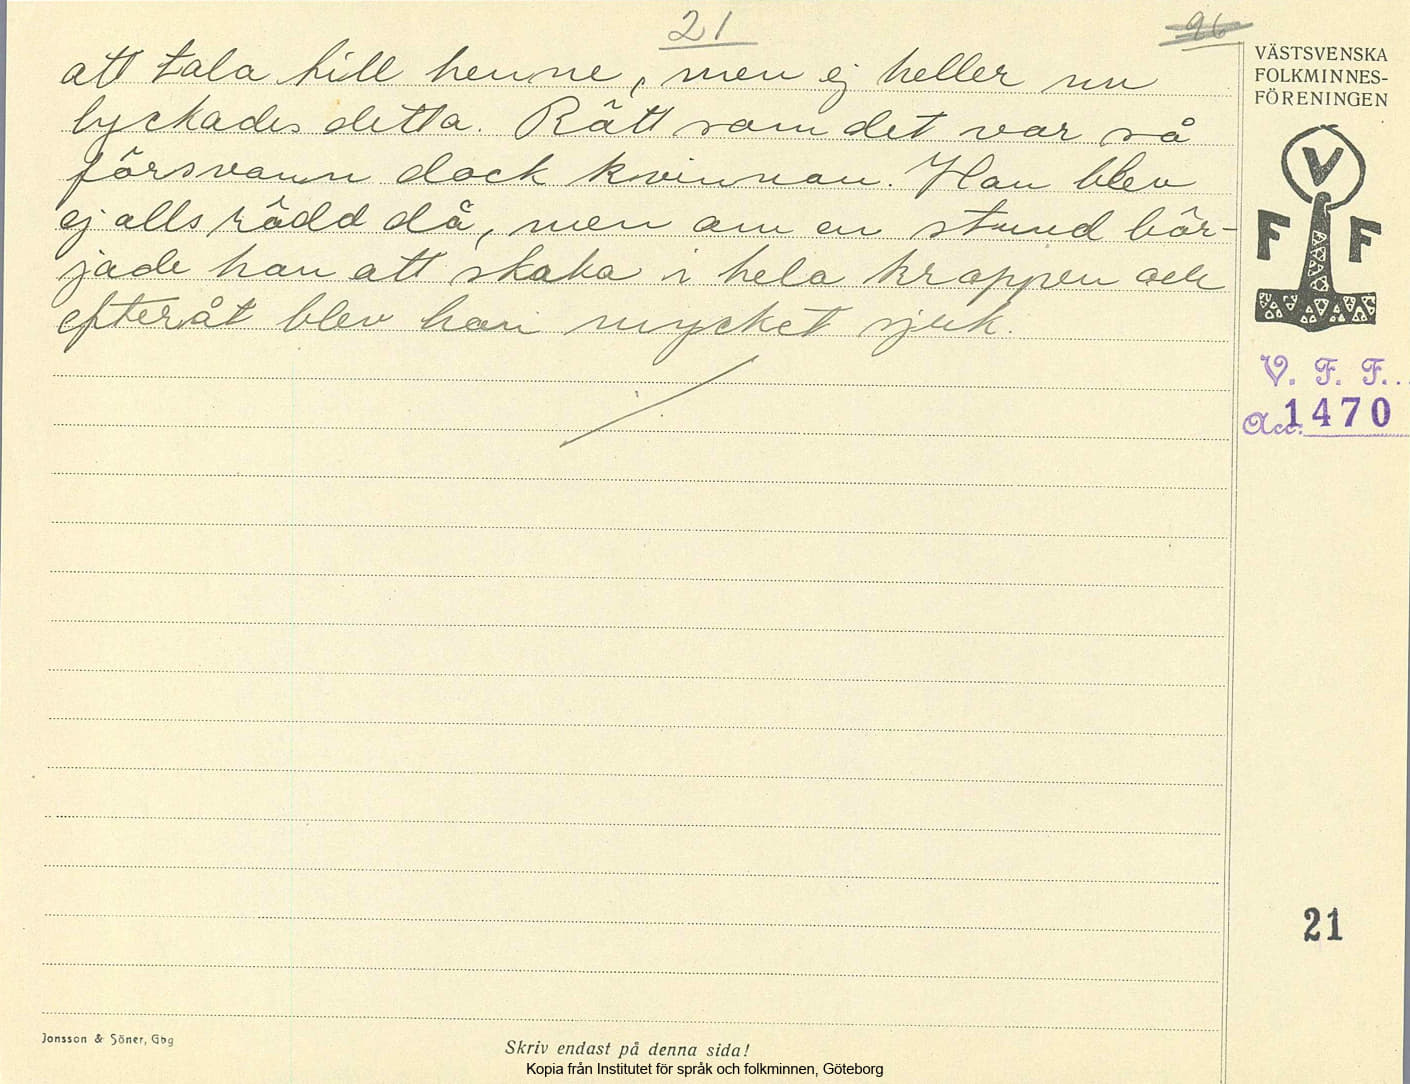 21
96
att tala till henne, men ej heller nu
lyckades detta. Rätt som det var så
försvann dock kvinnan. Han blev
ej alls rädd då, men om en stund bör-
jade han att skaka i hela kroppen och
efteråt blev han mycket sjuk.
VÄSTSVENSKA
FOLKMINNES-
FÖRENINGEN
V
F F
V. F. F...
Acc. 1470
21
Jonsson & Söner, Gbg
Skriv endast på denna sida!
Kopia från Institutet för språk och folkminnen, Göteborg